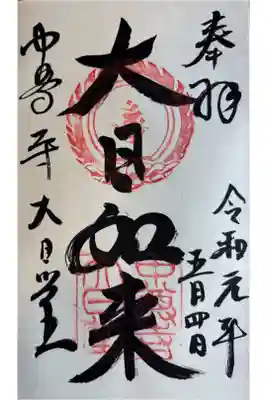 奉拝
令和元年
五月四日
大日如来
中尊寺
大日堂